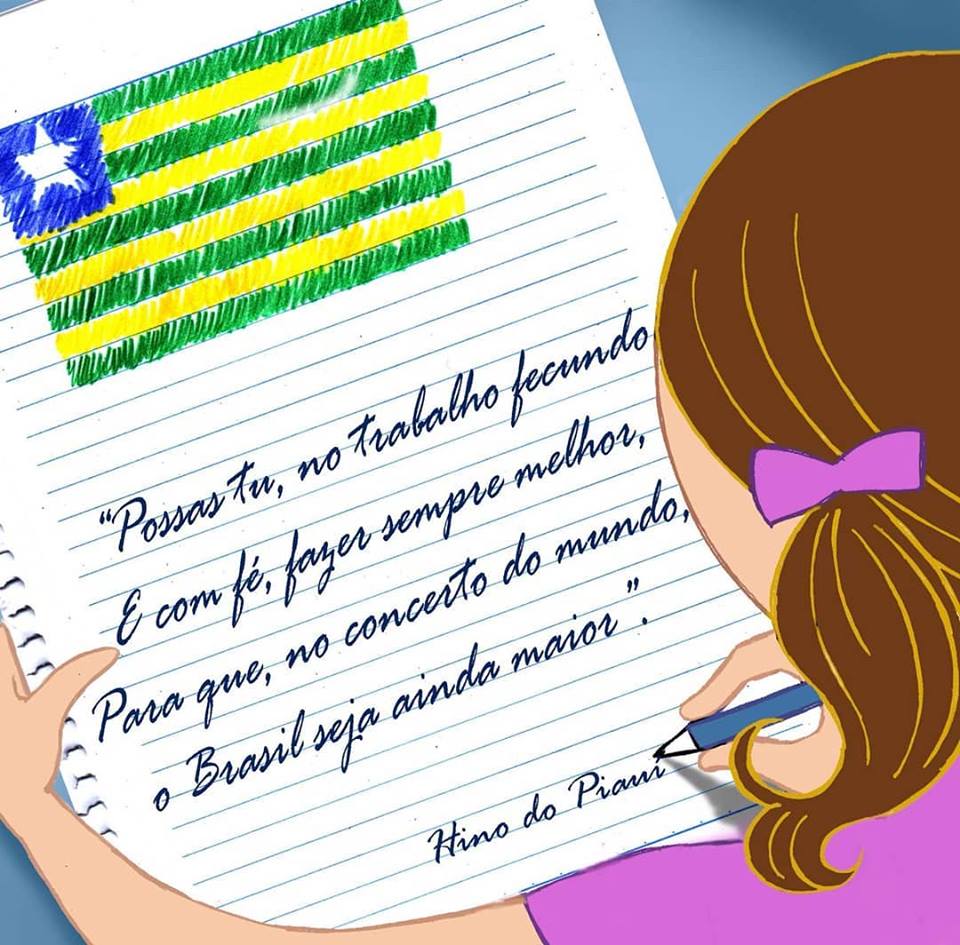 “Possas tu, no trabalho fecundo
E com fé, fazer sempre melhor,
Para que, no concerto do mundo,
o Brasil seja ainda maior”.
Hino do Piauí